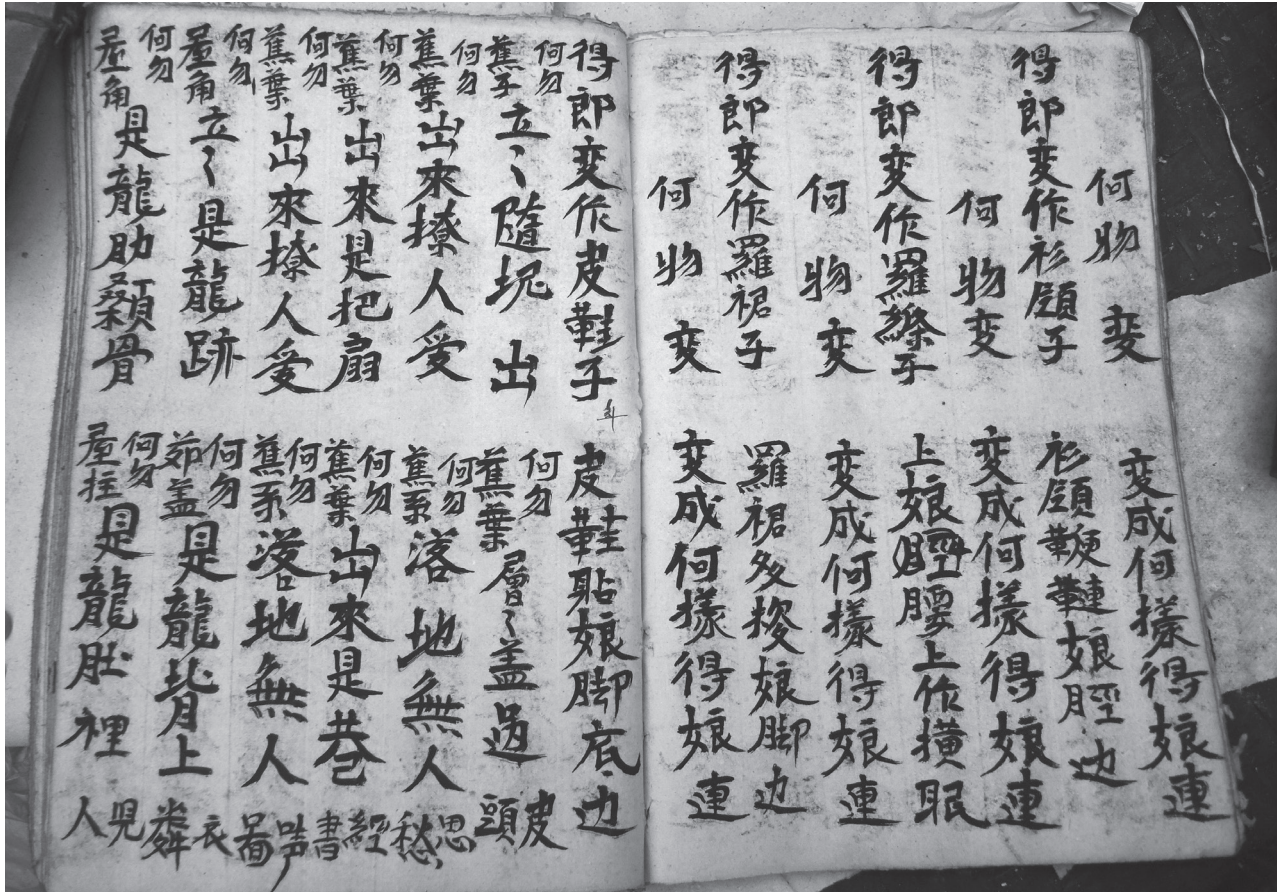 何物变
变成何樣得娘連
得郎变作衫領子
衫領鞕鞬娘脛边
何物变
变成何樣得娘連
得郎变作羅絲子
上娘腰上作橫眠
何物变
变成何樣得娘連
得郎变作羅裙子
羅裙多娘脚边
何物变
变成何樣得娘連
得郎变作皮鞋子
皮鞋貼娘脚底边
何勿蕉子立〻隨坭出
何勿蕉葉層〻盖過皮頭
何勿蕉葉出來撩人愛
何勿蕉系落地無人思愁
何勿蕉葉出來是把扇
何勿蕉葉出來是巷經書
何勿蕉葉出來撩人愛
何勿蕉系落地無人
何勿屋角立〻是龍跡
何勿茹盖是龍背上衣
何勿屋角是龍肋骨
何勿屋柱是龍肚裡兒人